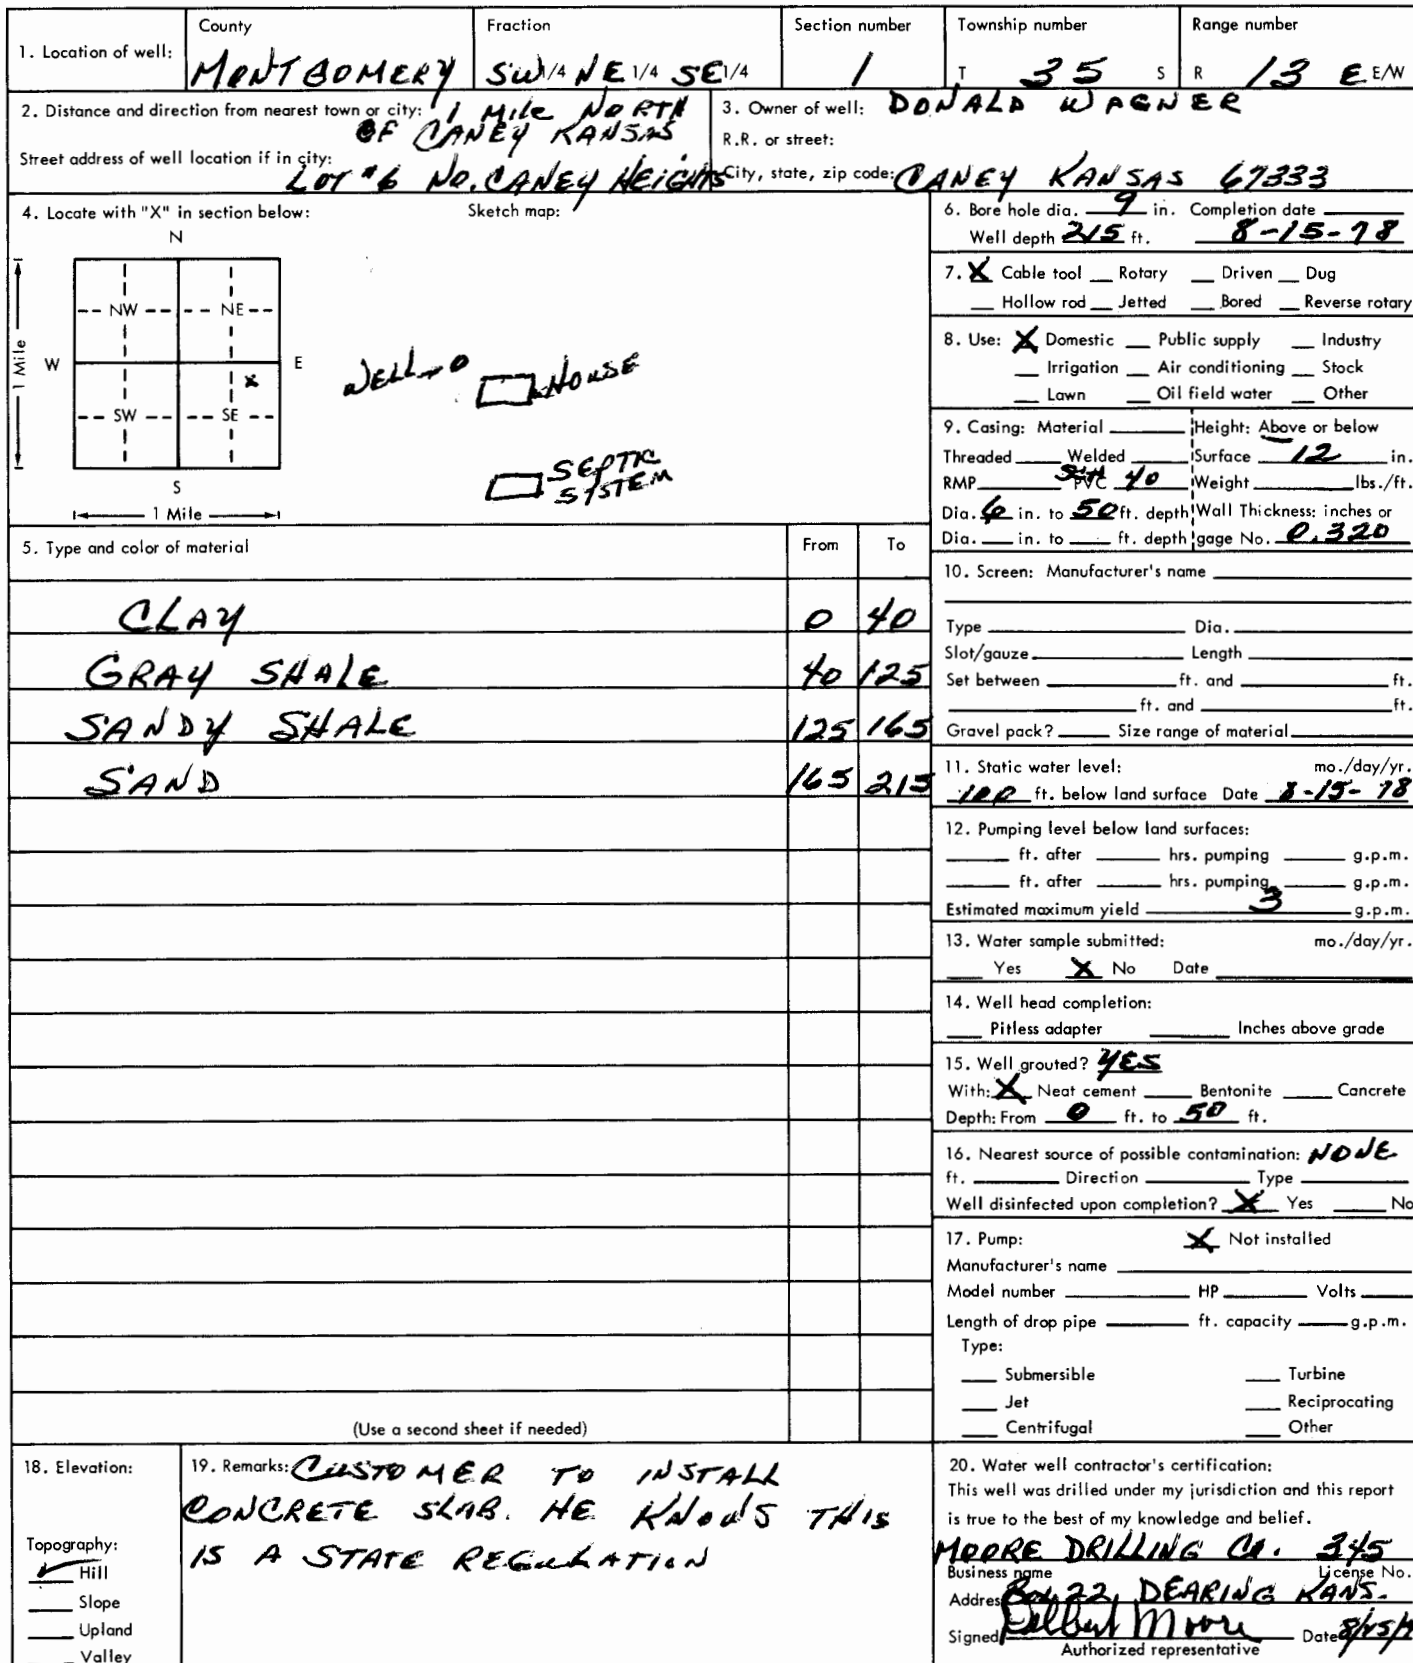 1. Location of well:
County
MONTGOMERY
Fraction
SW 1/4 NE 1/4 SE 1/4
Section number
1
Township number
T 35 S
Range number
R 13 E E/W
2. Distance and direction from nearest town or city: 1 MILE NORTH
OF CANEY KANSAS
Street address of well location if in city:
LOT #6 NO. CANEY HEIGHTS
3. Owner of well: DONALD WAGNER
R.R. or street:
City, state, zip code: CANEY KANSAS 67333
4. Locate with "X" in section below:
Sketch map:
N
NW NE
W E
X
SW SE
S
1 Mile
1 Mile
WELL→O
HOUSE
SEPTIC
SYSTEM
5. Type and color of material From To
CLAY 0 40
GRAY SHALE 40 125
SANDY SHALE 125 165
SAND 165 215
(Use a second sheet if needed)
6. Bore hole dia. 9 in. Completion date
Well depth 215 ft. 8-15-78
7. X Cable tool __ Rotary __ Driven __ Dug
__ Hollow rod __ Jetted __ Bored __ Reverse rotary
8. Use: X Domestic __ Public supply __ Industry
__ Irrigation __ Air conditioning __ Stock
__ Lawn __ Oil field water __ Other
9. Casing: Material ____ Height: Above or below
Threaded ____ Welded ____ Surface 12 in.
RMP ____ PVC 40 Weight ____ lbs./ft.
Dia. 6 in. to 50 ft. depth Wall Thickness: inches or
Dia. __ in. to __ ft. depth gage No. 0.320
10. Screen: Manufacturer's name ____
Type ____ Dia. ____
Slot/gauze ____ Length ____
Set between ____ ft. and ____ ft.
____ ft. and ____ ft.
Gravel pack? ____ Size range of material ____
11. Static water level: mo./day/yr.
100 ft. below land surface Date 8-15-78
12. Pumping level below land surfaces:
____ ft. after ____ hrs. pumping ____ g.p.m.
____ ft. after ____ hrs. pumping ____ g.p.m.
Estimated maximum yield 3 g.p.m.
13. Water sample submitted: mo./day/yr.
__ Yes X No Date ____
14. Well head completion:
__ Pitless adapter ____ Inches above grade
15. Well grouted? YES
With: X Neat cement ____ Bentonite ____ Cancrete
Depth: From 0 ft. to 50 ft.
16. Nearest source of possible contamination: NONE
ft. ____ Direction ____ Type ____
Well disinfected upon completion? X Yes ____ No
17. Pump: X Not installed
Manufacturer's name ____
Model number ____ HP ____ Volts ____
Length of drop pipe ____ ft. capacity ____ g.p.m.
Type:
__ Submersible __ Turbine
__ Jet __ Reciprocating
__ Centrifugal __ Other
18. Elevation:
Topography:
✓ Hill
__ Slope
__ Upland
__ Valley
19. Remarks: CUSTOMER TO INSTALL
CONCRETE SLAB. HE KNOWS THIS
IS A STATE REGULATION
20. Water well contractor's certification:
This well was drilled under my jurisdiction and this report
is true to the best of my knowledge and belief.
MOORE DRILLING CO. 345
Business name License No.
Address Box 22, DEARING KANS.
Signed Delbert Moore Date
Authorized representative